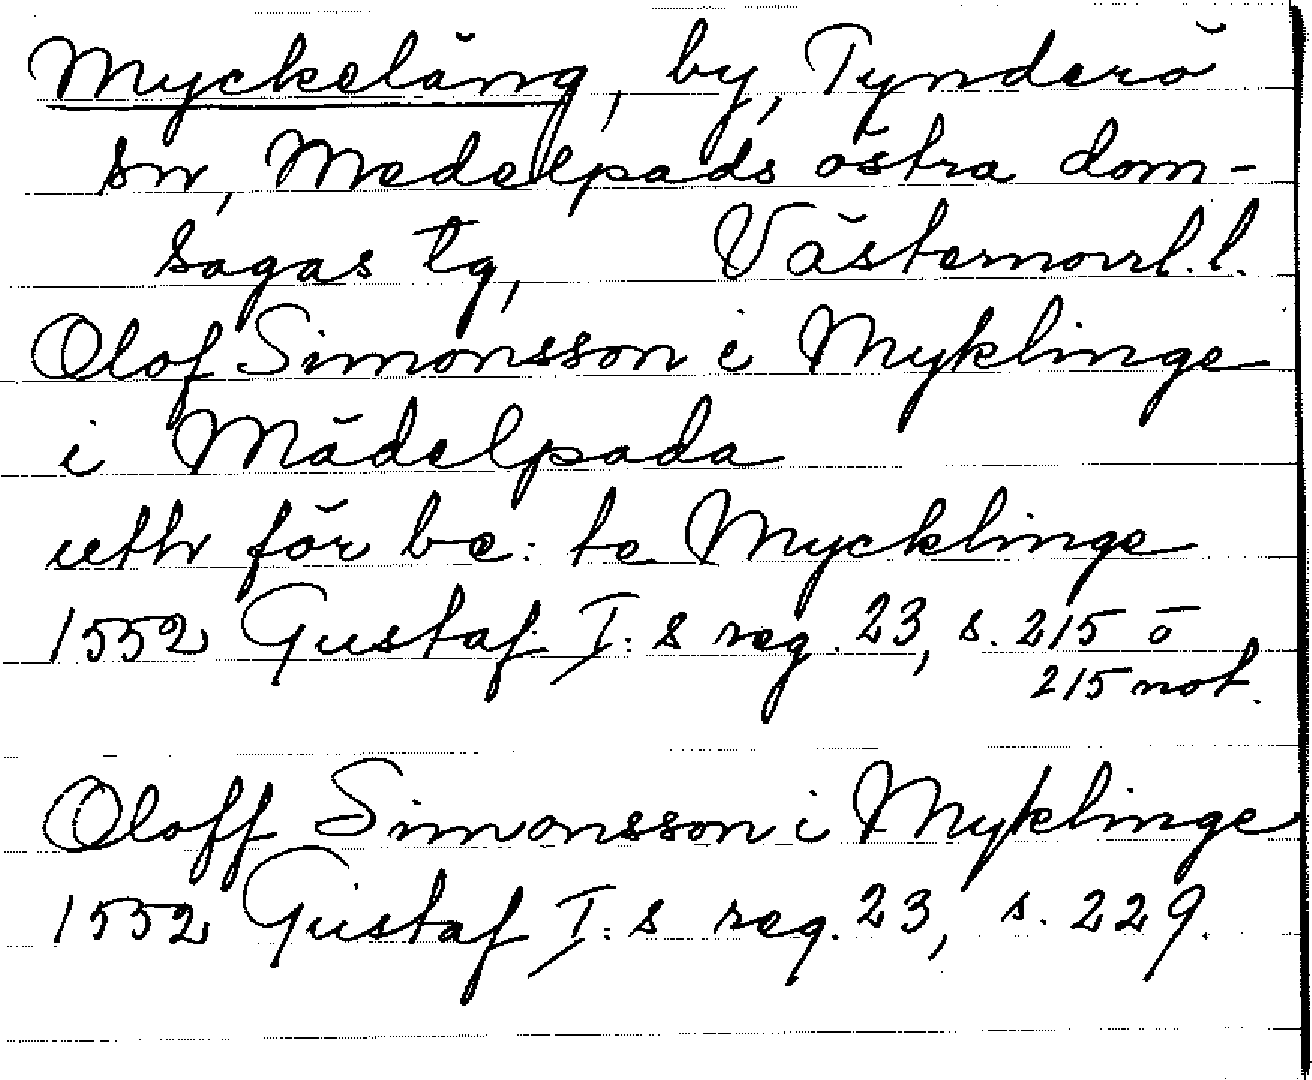 Myckeläng, by, Tynderö
sn, Medelpads östra dom-
sagas tg, Västernorrl. l.
Olof Simonsson i Myklinge
i Mädelpada
uthr för be: te Mycklinge
1552 Gustaf I: s reg. 23, s. 215 o
215 not.
Oloff Simonsson i Myklinge
1552 Gustaf I: s reg. 23, s. 229.